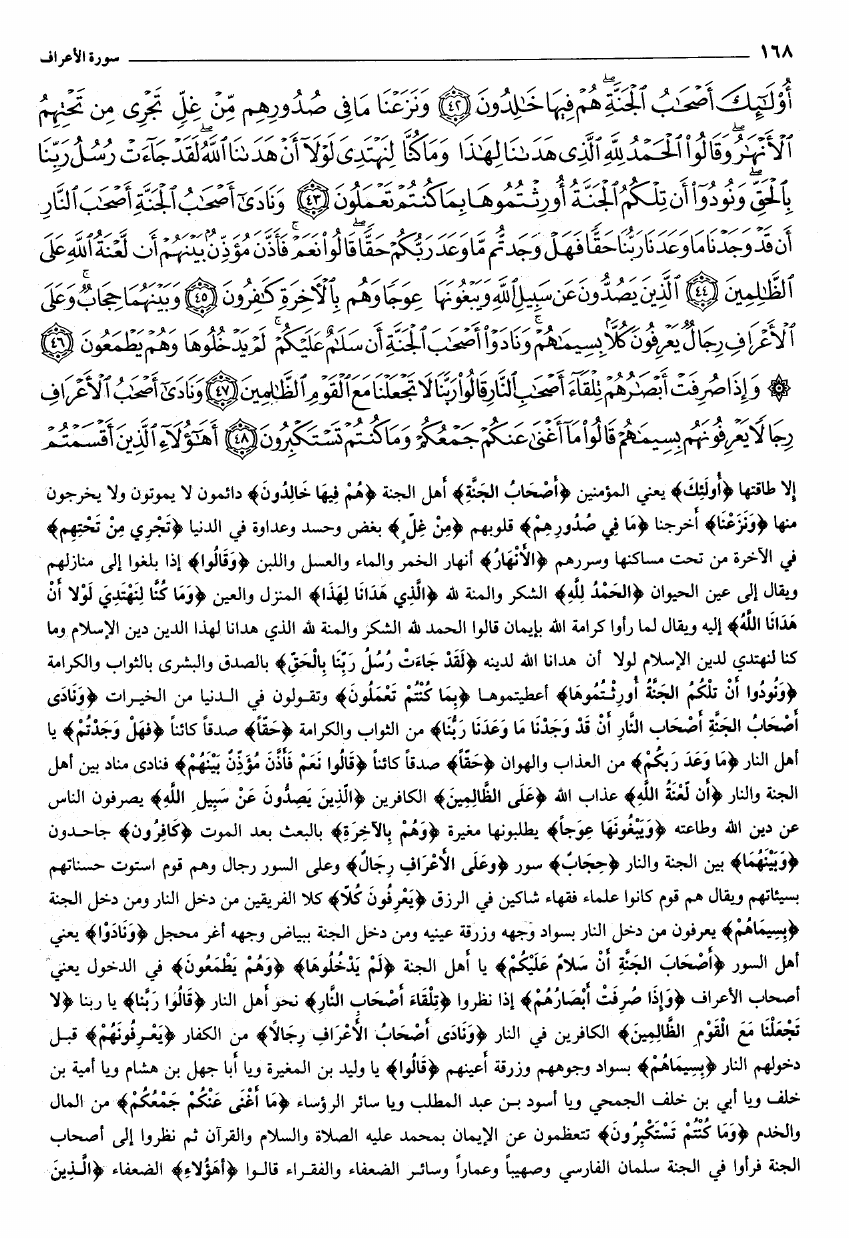 ١٦٨ سورة الأعراف
أُوْلَٰٓئِكَ أَصْحَٰبُ ٱلْجَنَّةِ ۖ هُمْ فِيهَا خَٰلِدُونَ ﴿٤٢﴾ وَنَزَعْنَا مَا فِى صُدُورِهِم مِّنْ غِلٍّ تَجْرِى مِن تَحْتِهِمُ
ٱلْأَنْهَٰرُ ۖ وَقَالُوا۟ ٱلْحَمْدُ لِلَّهِ ٱلَّذِى هَدَىٰنَا لِهَٰذَا وَمَا كُنَّا لِنَهْتَدِىَ لَوْلَآ أَنْ هَدَىٰنَا ٱللَّهُ ۖ لَقَدْ جَآءَتْ رُسُلُ رَبِّنَا
بِٱلْحَقِّ ۖ وَنُودُوٓا۟ أَن تِلْكُمُ ٱلْجَنَّةُ أُورِثْتُمُوهَا بِمَا كُنتُمْ تَعْمَلُونَ ﴿٤٣﴾ وَنَادَىٰٓ أَصْحَٰبُ ٱلْجَنَّةِ أَصْحَٰبَ ٱلنَّارِ
أَن قَدْ وَجَدْنَا مَا وَعَدَنَا رَبُّنَا حَقًّا فَهَلْ وَجَدتُّم مَّا وَعَدَ رَبُّكُمْ حَقًّا ۖ قَالُوا۟ نَعَمْ ۚ فَأَذَّنَ مُؤَذِّنٌۢ بَيْنَهُمْ أَن لَّعْنَةُ ٱللَّهِ عَلَى
ٱلظَّٰلِمِينَ ﴿٤٤﴾ ٱلَّذِينَ يَصُدُّونَ عَن سَبِيلِ ٱللَّهِ وَيَبْغُونَهَا عِوَجًا وَهُم بِٱلْءَاخِرَةِ كَٰفِرُونَ ﴿٤٥﴾ وَبَيْنَهُمَا حِجَابٌ ۚ وَعَلَى
ٱلْأَعْرَافِ رِجَالٌ يَعْرِفُونَ كُلًّۢا بِسِيمَىٰهُمْ ۚ وَنَادَوْا۟ أَصْحَٰبَ ٱلْجَنَّةِ أَن سَلَٰمٌ عَلَيْكُمْ ۚ لَمْ يَدْخُلُوهَا وَهُمْ يَطْمَعُونَ ﴿٤٦﴾
۞ وَإِذَا صُرِفَتْ أَبْصَٰرُهُمْ تِلْقَآءَ أَصْحَٰبِ ٱلنَّارِ قَالُوا۟ رَبَّنَا لَا تَجْعَلْنَا مَعَ ٱلْقَوْمِ ٱلظَّٰلِمِينَ ﴿٤٧﴾ وَنَادَىٰٓ أَصْحَٰبُ ٱلْأَعْرَافِ
رِجَالًا يَعْرِفُونَهُم بِسِيمَىٰهُمْ قَالُوا۟ مَآ أَغْنَىٰ عَنكُمْ جَمْعُكُمْ وَمَا كُنتُمْ تَسْتَكْبِرُونَ ﴿٤٨﴾ أَهَٰٓؤُلَآءِ ٱلَّذِينَ أَقْسَمْتُمْ
إلا طاقتها ﴿أُولَئِكَ﴾ يعني المؤمنين ﴿أَصْحَابُ الجَنَّةِ﴾ أهل الجنة ﴿هُمْ فِيهَا خَالِدُونَ﴾ دائمون لا يموتون ولا يخرجون
منها ﴿وَنَزَعْنَا﴾ أخرجنا ﴿مَا فِي صُدُورِهِمْ﴾ قلوبهم ﴿مِنْ غِلٍّ﴾ بغض وحسد وعداوة في الدنيا ﴿تَجْرِي مِنْ تَحْتِهِم﴾
في الآخرة من تحت مساكنها وسررهم ﴿الأَنْهَارُ﴾ أنهار الخمر والماء والعسل واللبن ﴿وَقَالُوا﴾ إذا بلغوا إلى منازلهم
ويقال إلى عين الحيوان ﴿الحَمْدُ لِلَّهِ﴾ الشكر والمنة لله ﴿الَّذِي هَدَانَا لِهَذَا﴾ المنزل والعين ﴿وَمَا كُنَّا لِنَهْتَدِيَ لَوْلا أَنْ
هَدَانَا اللَّهُ﴾ إليه ويقال لما رأوا كرامة الله بإيمان قالوا الحمد لله الشكر والمنة لله الذي هدانا لهذا الدين دين الإسلام وما
كنا لنهتدي لدين الإسلام لولا أن هدانا الله لدينه ﴿لَقَدْ جَاءَتْ رُسُلُ رَبِّنَا بِالْحَقِّ﴾ بالصدق والبشرى بالثواب والكرامة
﴿وَنُودُوا أَنْ تِلْكُمُ الجَنَّةُ أُورِثْتُمُوهَا﴾ أعطيتموها ﴿بِمَا كُنْتُمْ تَعْمَلُونَ﴾ وتقولون في الدنيا من الخيرات ﴿وَنَادَى
أَصْحَابُ الجَنَّةِ أَصْحَابَ النَّارِ أَنْ قَدْ وَجَدْنَا مَا وَعَدَنَا رَبُّنَا﴾ من الثواب والكرامة ﴿حَقّاً﴾ صدقاً كائناً ﴿فَهَلْ وَجَدْتُمْ﴾ يا
أهل النار ﴿مَا وَعَدَ رَبُكُمْ﴾ من العذاب والهوان ﴿حَقّاً﴾ صدقاً كائناً ﴿قَالُوا نَعَمْ فَأَذَّنَ مُؤَذِّنٌ بَيْنَهُمْ﴾ فنادى مناد بين أهل
الجنة والنار ﴿أَن لَعْنَةُ اللَّهِ﴾ عذاب الله ﴿عَلَى الظَّالِمِينَ﴾ الكافرين ﴿الَّذِينَ يَصِدُّونَ عَنْ سَبِيلِ اللَّهِ﴾ يصرفون الناس
عن دين الله وطاعته ﴿وَيَبْغُونَهَا عِوَجاً﴾ يطلبونها مغيرة ﴿وَهُمْ بِالآخِرَةِ﴾ بالبعث بعد الموت ﴿كَافِرُون﴾ جاحدون
﴿وَبَيْنَهُمَا﴾ بين الجنة والنار ﴿حِجَابٌ﴾ سور ﴿وَعَلَى الأَعْرَافِ رِجَالٌ﴾ وعلى السور رجال وهم قوم استوت حسناتهم
بسيئاتهم ويقال هم قوم كانوا علماء فقهاء شاكين في الرزق ﴿يَعْرِفُونَ كُلّاً﴾ كلا الفريقين من دخل النار ومن دخل الجنة
﴿بِسِيمَاهُمْ﴾ يعرفون من دخل النار بسواد وجهه وزرقة عينيه ومن دخل الجنة ببياض وجهه أغر محجل ﴿وَنَادَوْا﴾ يعني
أهل السور ﴿أَصْحَابَ الجَنَّةِ أَنْ سَلَامٌ عَلَيْكُمْ﴾ يا أهل الجنة ﴿لَمْ يَدْخُلُوهَا﴾ ﴿وَهُمْ يَطْمَعُونَ﴾ في الدخول يعني
أصحاب الأعراف ﴿وَإِذَا صُرِفَتْ أَبْصَارُهُمْ﴾ إذا نظروا ﴿تِلْقَاءَ أَصْحَابِ النَّارِ﴾ نحو أهل النار ﴿قَالُوا رَبَّنَا﴾ يا ربنا ﴿لا
تَجْعَلْنَا مَعَ الْقَوْمِ الظَّالِمِينَ﴾ الكافرين في النار ﴿وَنَادَى أَصْحَابُ الأَعْرَافِ رِجَالاً﴾ من الكفار ﴿يَعْرِفُونَهُمْ﴾ قبل
دخولهم النار ﴿بِسِيمَاهُمْ﴾ بسواد وجوههم وزرقة أعينهم ﴿قَالُوا﴾ يا وليد بن المغيرة ويا أبا جهل بن هشام ويا أمية بن
خلف ويا أبي بن خلف الجمحي ويا أسود بن عبد المطلب ويا سائر الرؤساء ﴿مَا أَغْنَى عَنْكُمْ جَمْعُكُمْ﴾ من المال
والخدم ﴿وَمَا كُنْتُمْ تَسْتَكْبِرُونَ﴾ تتعظمون عن الإيمان بمحمد عليه الصلاة والسلام والقرآن ثم نظروا إلى أصحاب
الجنة فرأوا في الجنة سلمان الفارسي وصهيباً وعماراً وسائر الضعفاء والفقراء قالوا ﴿أَهَؤُلاَءِ﴾ الضعفاء ﴿الَّذِينَ